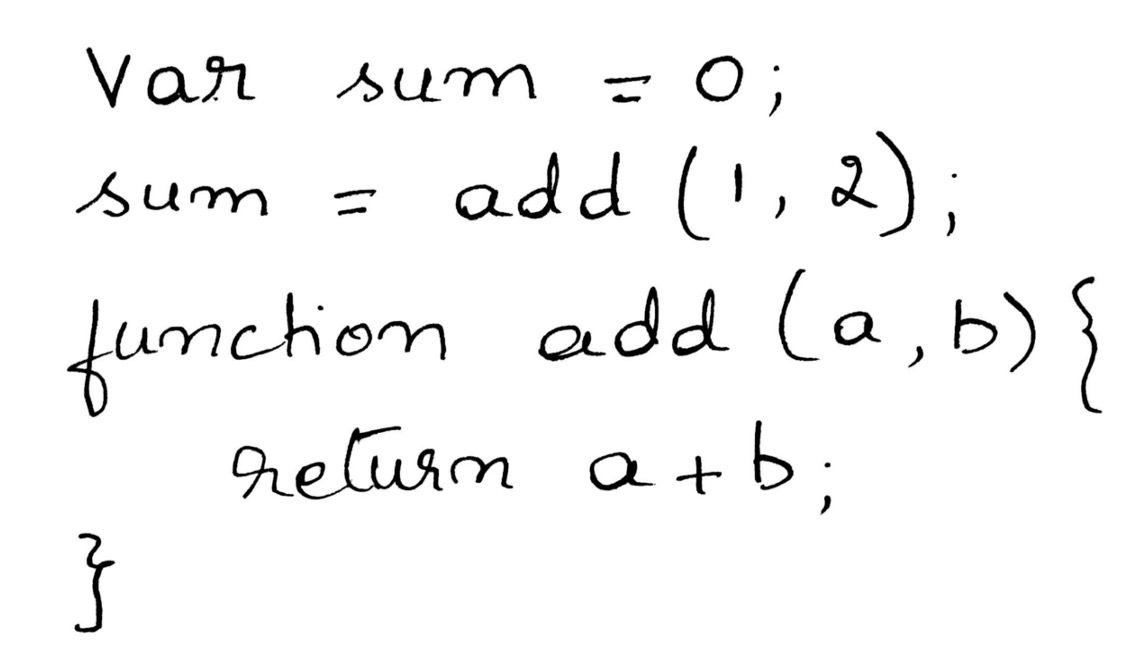 Var sum = 0;
sum = add (1, 2);
function add (a, b) {
return a + b;
}